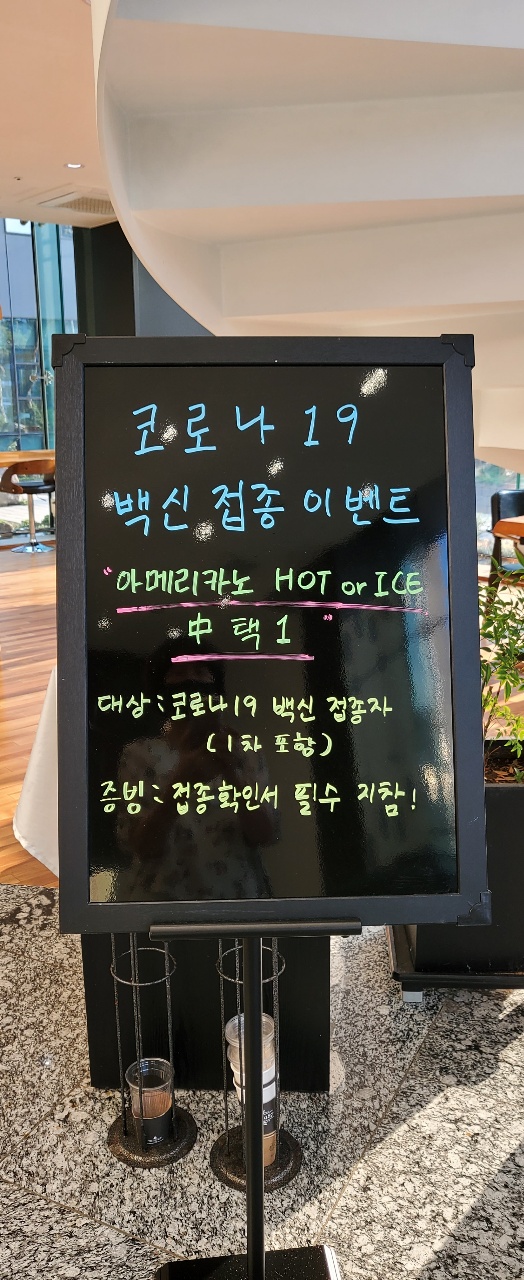 코로나 19
백신 접종 이벤트
"아메리카노 HOT or ICE
中 택 1 "
대상 : 코로나19 백신 접종자
(1차 포함)
증빙 : 접종확인서 필수 지참!